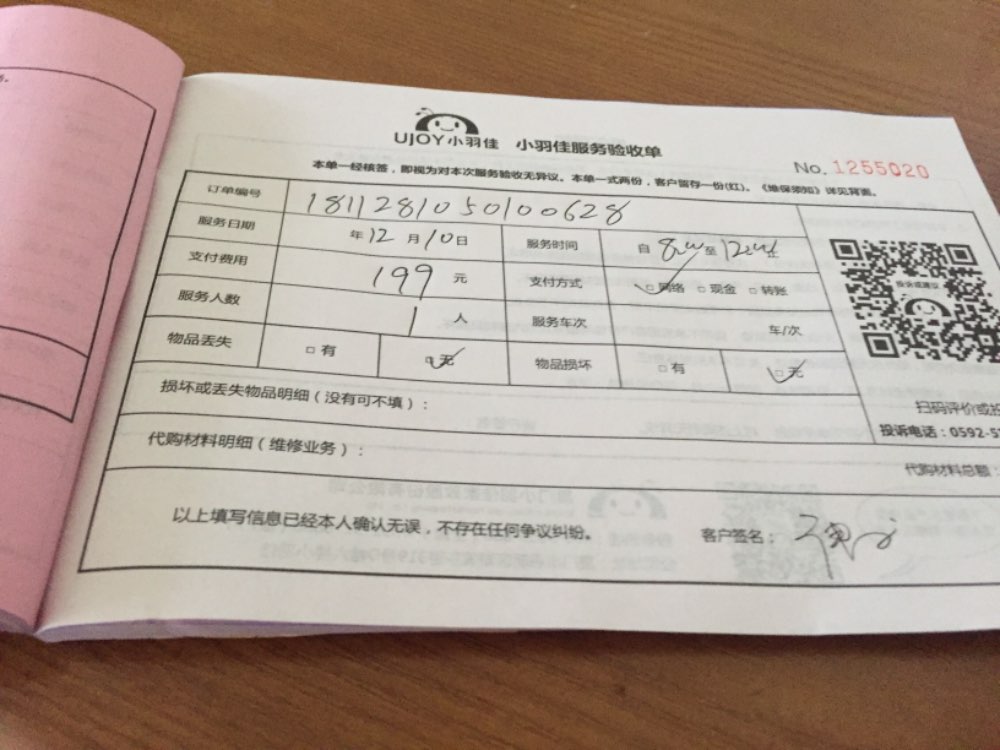 UJOY小羽佳 小羽佳服务验收单
No. 1255020
本单一经核签，即视为对本次服务验收无异议。本单一式两份，客户留存一份(红)。《维保须知》详见背面。
订单编号 1811281050100628
服务日期 年12月10日 服务时间 自 8:00 至 12:00 止
支付费用 199 元 支付方式 □网络 □现金 □转账
服务人数 1 人 服务车次 车/次
物品丢失 □有 □无 物品损坏 □有 □无
投诉或建议
损坏或丢失物品明细（没有可不填）：
扫码评价或投
投诉电话：0592-5
代购材料明细（维修业务）：
代购材料总额：
以上填写信息已经本人确认无误，不存在任何争议纠纷。 客户签名：